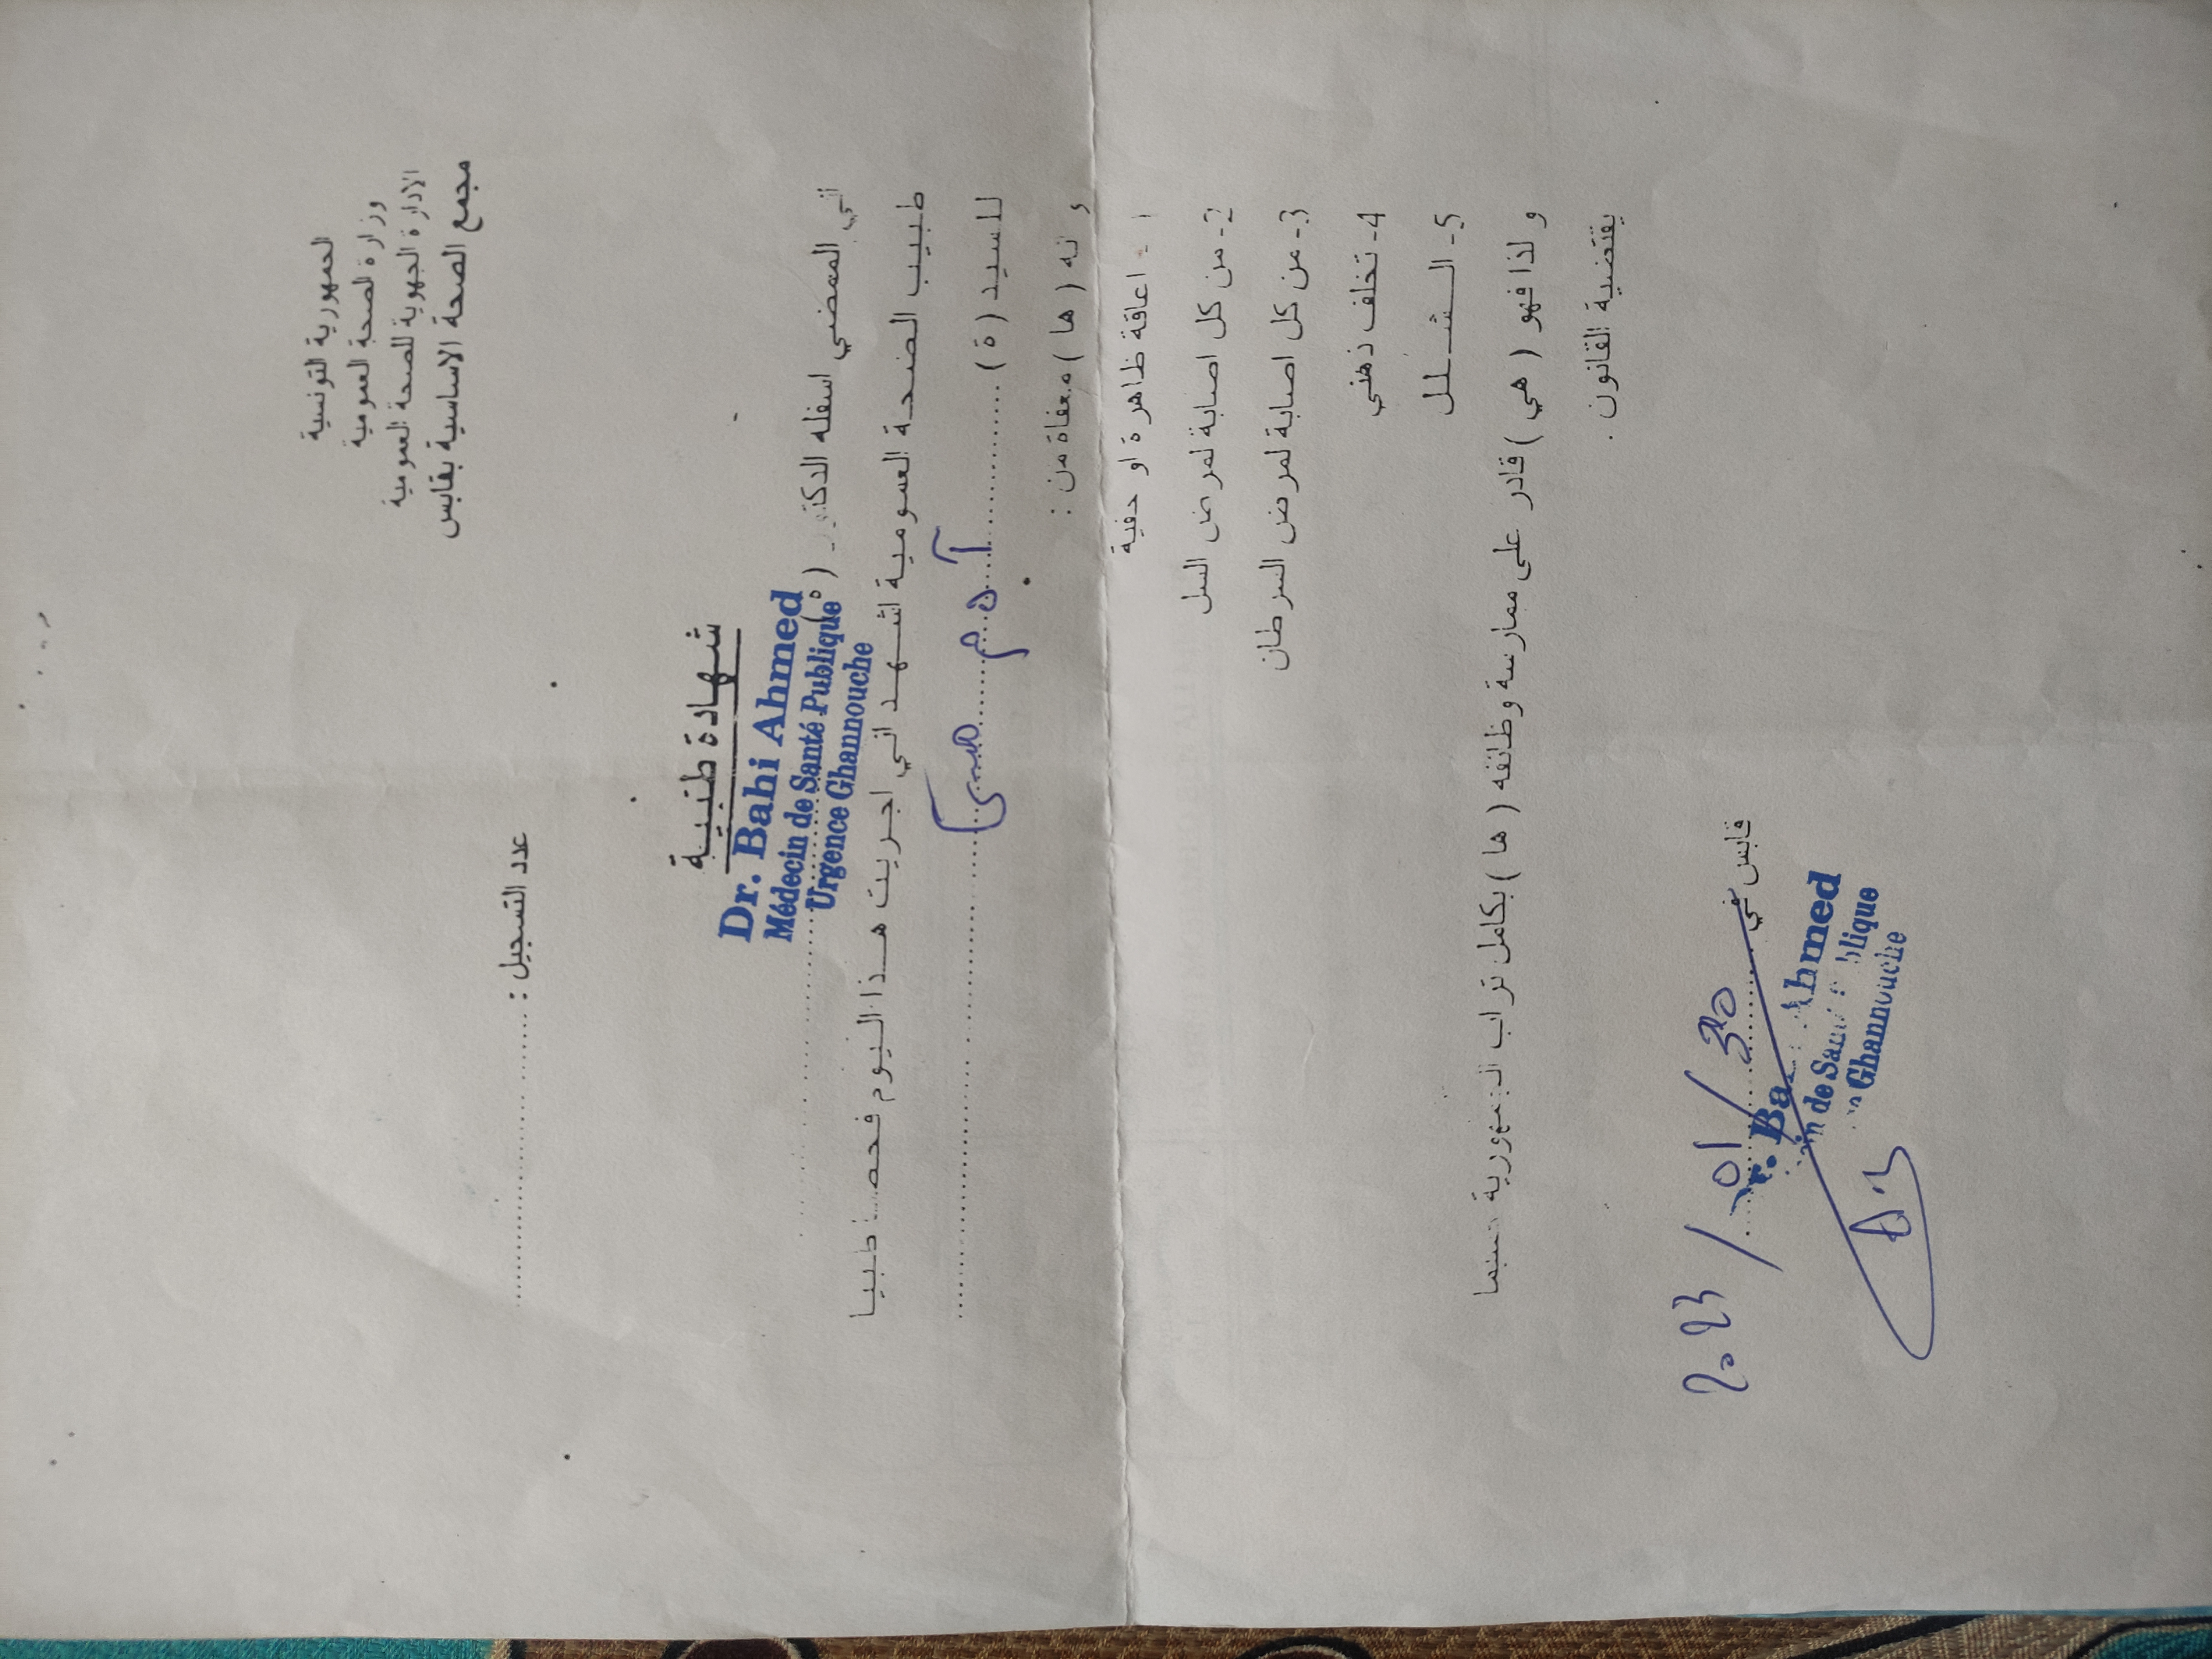 الجمهورية التونسية
وزارة الصحة العمومية
الادارة الجهوية للصحة العمومية
مجمع الصحة الاساسية بقابس
عدد التسجيل : ..............................
شهادة طبية
Dr. Bahi Ahmed
Médecin de Santé Publique
Urgence Ghannouche
اني الممضي اسفله الدكتور ( ة )
طبيب الصحة العمومية اشهد اني اجريت هذا اليوم فحصا طبيا
للسيد ( ة ) .......... آدم
و انه ( ها ) معفاة من :
1- اعاقة ظاهرة او خفية
2- من كل اصابة لمرض السل
3- من كل اصابة لمرض السرطان
4- تخلف ذهني
5- الشلل
و لذا فهو ( هي ) قادر على ممارسة وظائفه ( ها ) بكامل تراب الجمهورية حسبما
يقتضية القانون .
قابس في 30 / 01 / 2023
Ahmed
de
Ghannouche